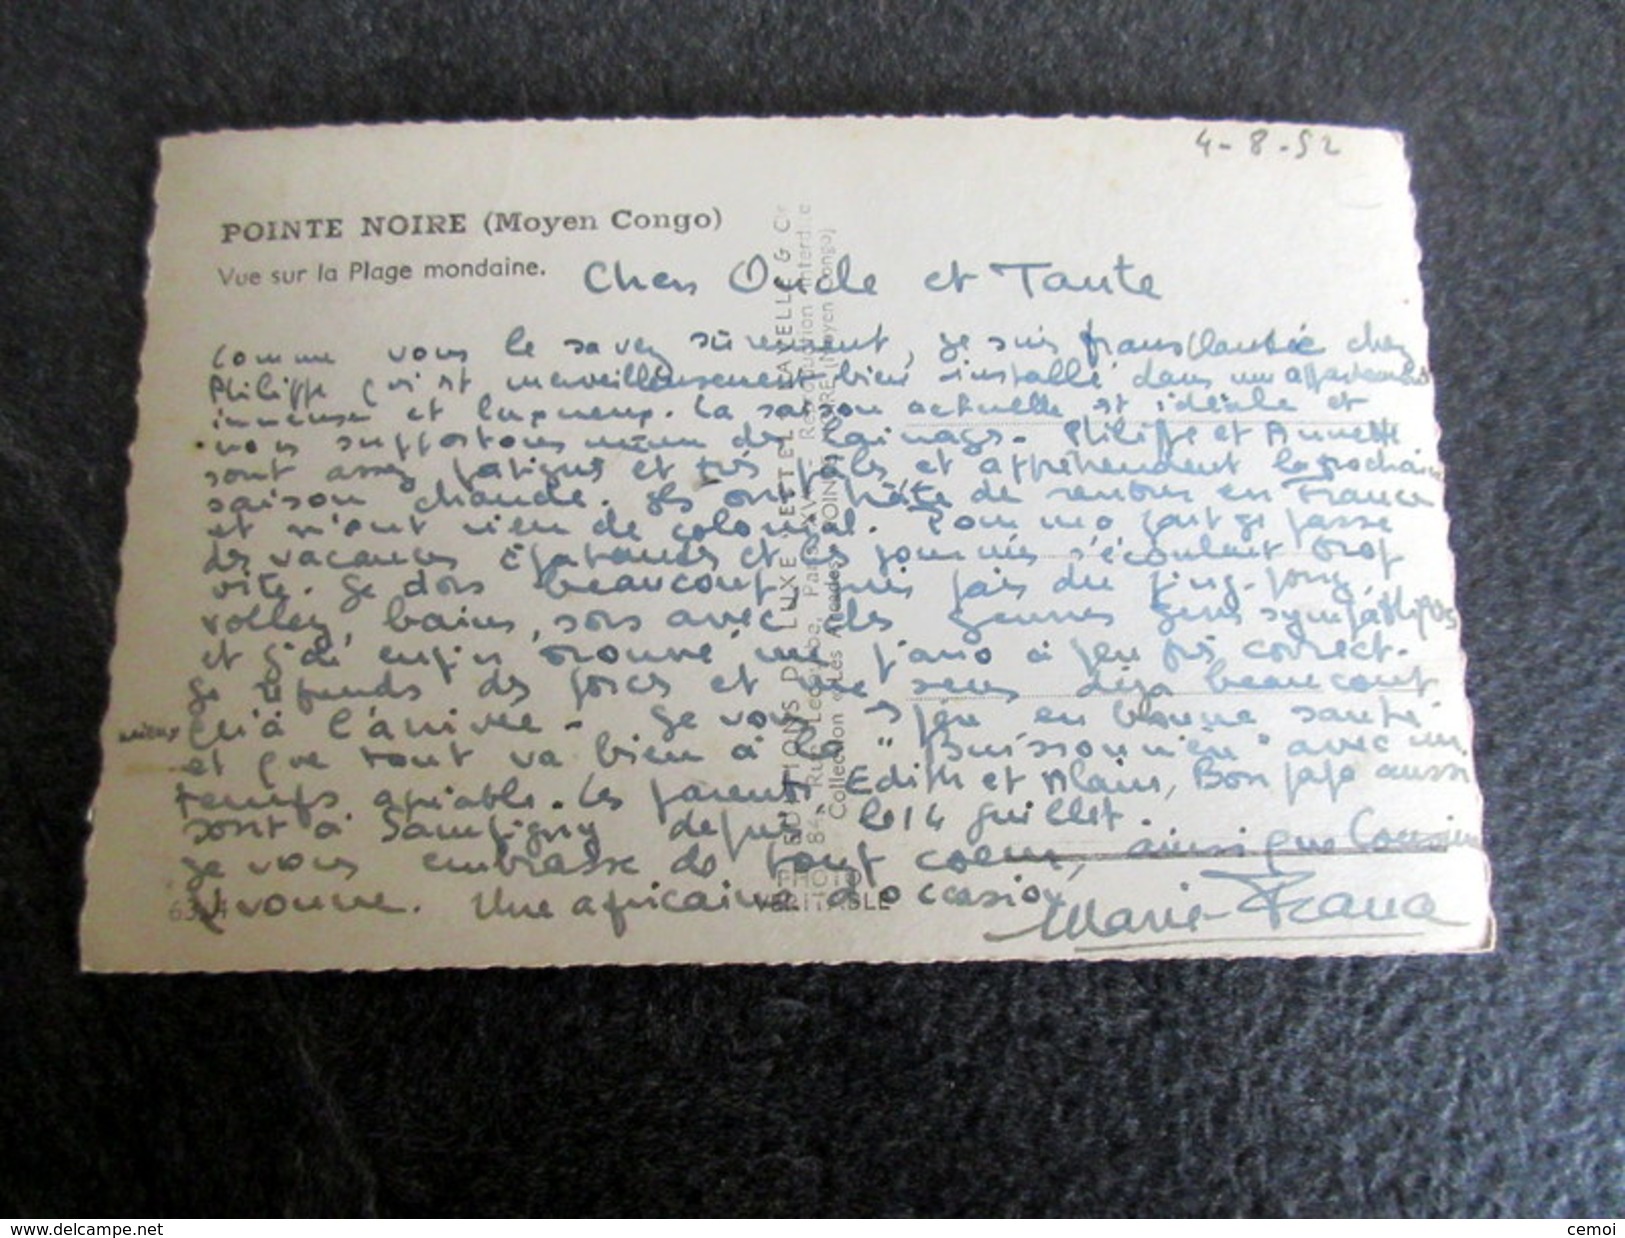 4-8-52
POINTE NOIRE (Moyen Congo)
Vue sur la Plage mondaine.
Chers Oncle et Tante
Comme vous le savez sûrement, je suis transplantée chez
Philippe qui est merveilleusement bien installé dans un appartement
immense et luxueux. La saison actuelle est idéale et
nous supportons même des lainages. Philippe et Annette
sont assez fatigués et très pâles et appréhendent la prochaine
saison chaude. Ils ont hâte de rentrer en France
et n'ont rien de colonial. Pour ma part je passe
des vacances épatantes et les journées s'écoulent trop
vite. Je dors beaucoup puis fais du ping-pong,
volley, bains, sors avec des jeunes gens sympathiques
et j'ai enfin trouvé un piano à peu près correct.
Je reprends des forces et me sens déjà beaucoup
mieux qu'à l'arrivée. Je vous espère en bonne santé
et que tout va bien à la "Buissonnière" avec un
temps agréable. Les parents, Edith et Alain, Bon papa aussi
sont à Sampigny depuis le 14 juillet.
Je vous embrasse de tout coeur, ainsi que Cousine
Yvonne. Une africaine d'occasion
Marie-France
EDITIONS DE LUXE "ESTEL" LAVELLE & Cie
84, Rue Lecourbe, Paris XVe Reproduction interdite
Collection «Les Arcades» POINTE NOIRE (Moyen Congo)
PHOTO
VERITABLE
www.delcampe.net
cemoi